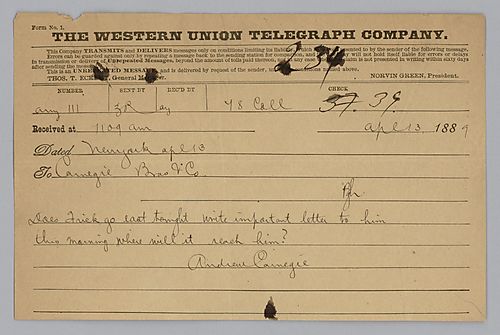 Form No. 1.
THE WESTERN UNION TELEGRAPH COMPANY.
This Company TRANSMITS and DELIVERS messages only on conditions limiting its liability, which have been assented to by the sender of the following message.
Errors can be guarded against only by repeating a message back to the sending station for comparison, and the Company will not hold itself liable for errors or delays
in transmission or delivery of Unrepeated Messages, beyond the amount of tolls paid thereon, nor in any case where the claim is not presented in writing within sixty days
after sending the message.
This is an UNREPEATED MESSAGE and is delivered by request of the sender, under the conditions named above.
THOS. T. ECKERT, General Manager. NORVIN GREEN, President.
234
NUMBER SENT BY REC'D BY CHECK
111 78 Call 37. 39.
Received at 1109 am April 13 1889
Dated Newyork apl 13
To Carnegie Bros & Co.
Pgh
Does Frick go east tonight write important letter to him
this morning where will it reach him?
Andrew Carnegie